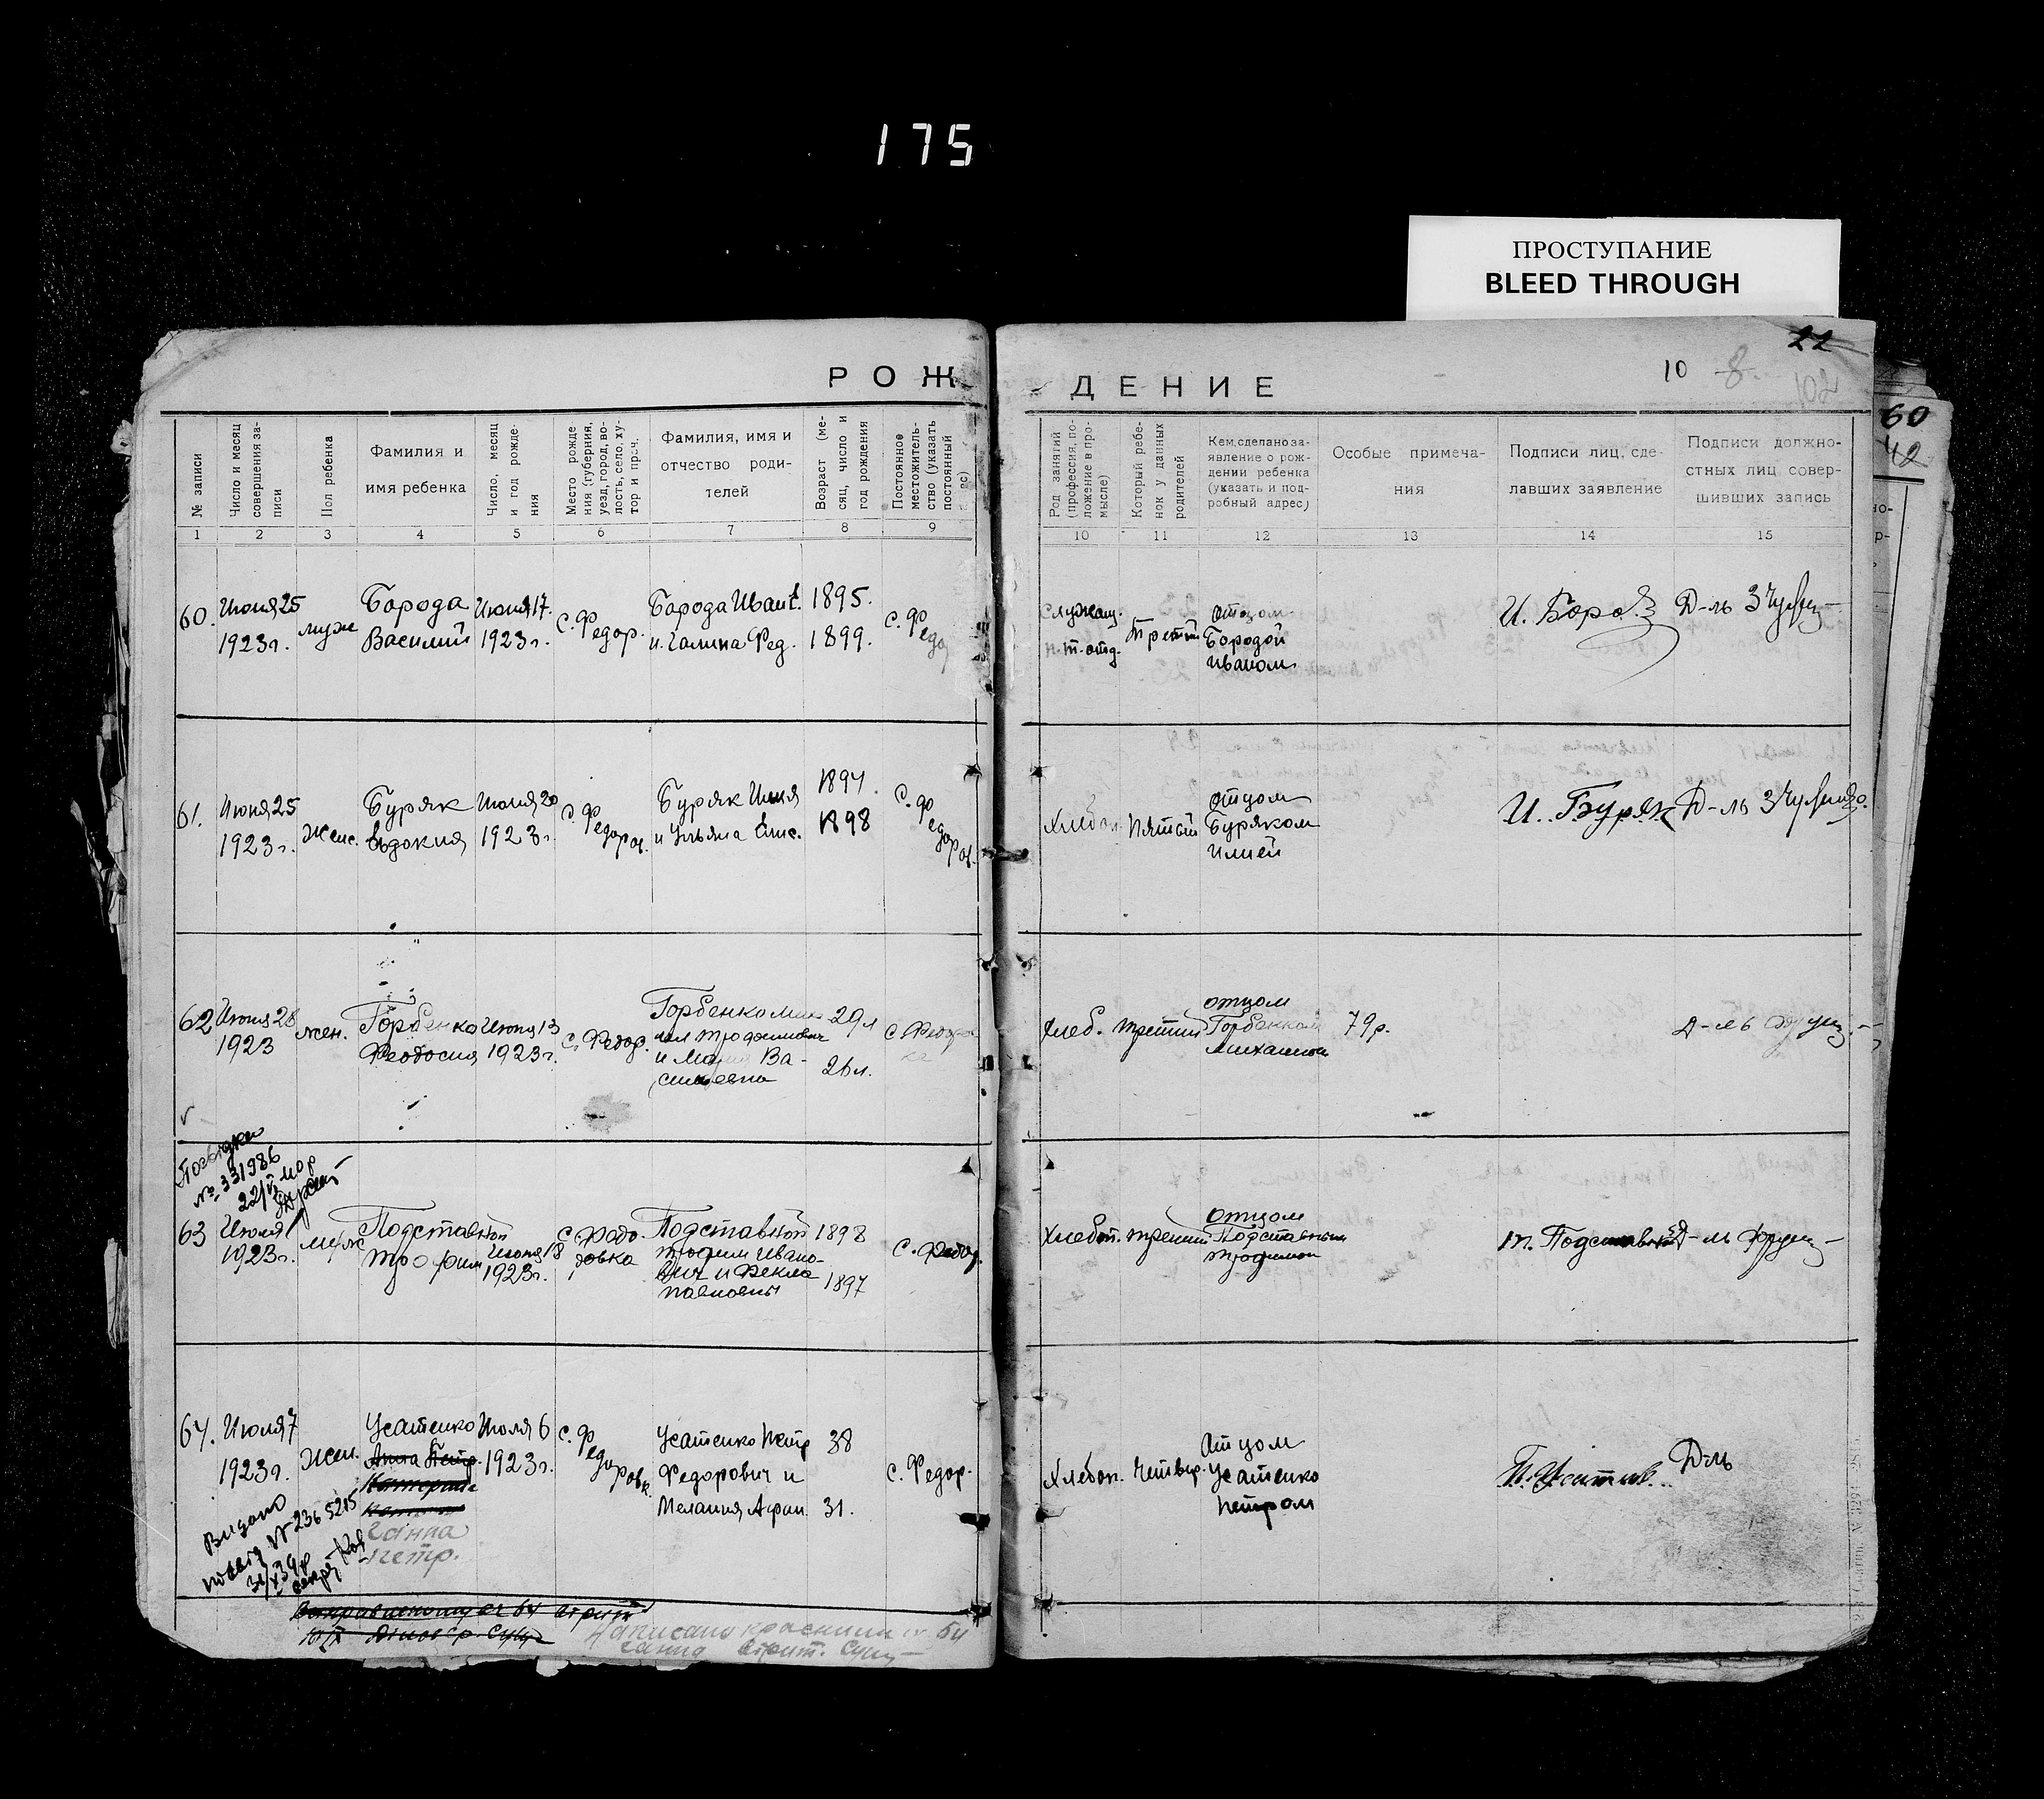 175
ПРОСТУПАНИЕ
BLEED THROUGH
22
10 8.
60
42
РОЖДЕНИЕ
№ записи
Число и месяц совершения записи
Пол ребенка
Фамилия и
имя ребенка
Число, месяц и год рождения
Место рождения (губерния, уезд, город, волость, село, хутор и проч.
Фамилия, имя и
отчество роди-
телей
Возраст (месяц, число и год рождения
Постоянное местожительство (указать постоянный
Род занятий (профессия, положение в промысле)
Который ребенок у данных родителей
Кем, сделано за-
явление о рож-
дении ребенка
(указать и под-
робный адрес)
Особые примеча-
ния
Подписи лиц, сде-
лавших заявление
Подписи должно-
стных лиц совер-
шивших запись
1 2 3 4 5 6 7 8 9 10 11 12 13 14 15
60.
Июня 25
1923 г.
муж
Борода
Василий
Июня 17.
1923 г.
с. Федор.
Борода Иван
и Галина Фед.
1895.
1899.
с. Федо
Служащ.
Третий
Отцом
Бородой
Иваном
И. Бород
Д-ль
61.
Июня 25
1923 г.
Женс.
Буряк
Евдокия
Июня 20
1923 г.
с. Федоров.
Буряк Илия
и Ульяна
1897.
1898
с. Федоров.
Хлебоп.
Пятый
отцом
Буряком
Илией
И. Буряк
Д-ль
62
Июня 28
1923
жен.
Горбенко
Феодосия
Июня 13
1923 г.
с. Федор.
Горбенко Миха
ил Трофимович
и Мария Ва-
сильевна
29 л
26 л.
с. Федоров
ка
Хлеб.
третий
отцом
Горбенком
Михаилом
79 р.
Д-ль
№ 331986
63
Июля 1
1923 г.
муж
Подставной
Трофим
Июня 18
1923 г.
с. Федо
ровка
Подставной
Трофим Ивано-
вич и Фекла
Павловны
1898
1897
с. Федор.
Хлебоп.
третий
отцом
Подставным
Трофимом
Т. Подставной
Д-ль
64.
Июля 7
1923 г.
Жен.
Усатенко
Анна Петр.
Катерина
Ганна
Петр.
Июля 6
1923 г.
с. Федоровк.
Усатенко Петр
Федорович и
Мелания Афан.
38
31.
с. Федор.
Хлебоп.
Четвер.
Отцом
Усатенко
Петром
Д-ль
Видано
№ 2365215
Написано красними